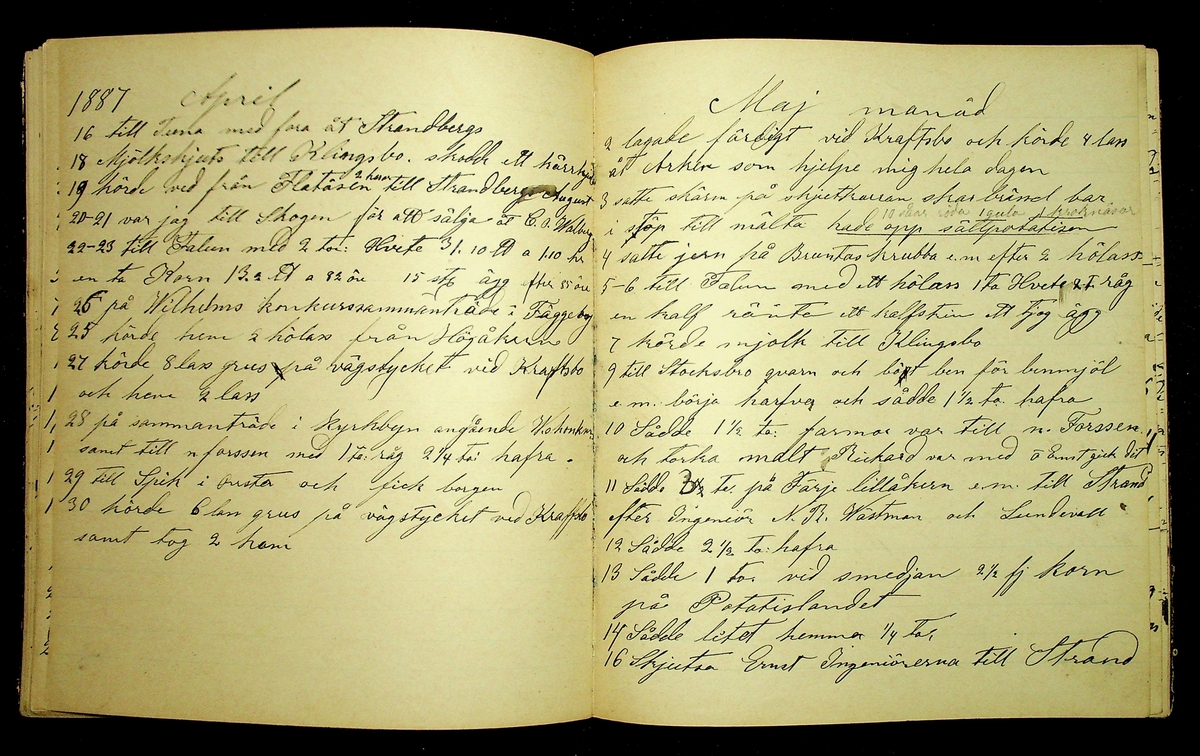 1887 April
16 till Tuna med fora åt Strandbergs
18 Mjölkskjuts till Klingsbo. skodde ett kärrhjul
2 ham
19 körde ved från Flatåsen till Strandbergs August
20-21 var jag till Skogen för att sälja åt C. J. Walberg
22-23 till Falun med 2 to: Hvete 31.10 ℔ a 1.10 kr
en to Korn 13.2 ℔ a 82 öre 15 stg ägg efter 85 öre
26 på Wilhelms konkurssammanträde i Fäggeby
25 körde hem 2 hölass från Högåkern
27 körde 8 lass grus på vägstycket vid Kraftsbo
och hem 2 lass
28 på sammanträde i Kyrkbyn angående W. konkurs
samt till n forssen med 1 to: råg 2 1/4 to: hafra.
29 till Spik i och fick borgen
30 körde 6 lass grus på vägstycket vid Kraftsbo
samt tog 2 ham
Maj manäd
2 lagade färdigt vid Kraftsbo och körde 4 lass
åt som hjelpe mig hela dagen
3 satte skärm på skjutkärran bar
10 röda 1 gula
i stöp till mälta hade opp sättpotatisen
4 satte jern på Bruntas krubba e.m efter 2 hölass
5-6 till Falun med ett hölass 1 to Hvete råg
en half ett kalfskin ett tjog ägg
7 körde mjolk till Klingsbo
9 till Stocksbro qvarn och ben för benmjöl
e.m. börja harfva och sådde 1 1/2 to. hafra
10 Sådde 1 1/2 to: farmor var till n. Forssen
och torka malt Rickard var med o Ernst gick dit
11 Sådde to. på Färje lillåkern e.m. till Strand
efter Ingeniör N. R. Wästman och Lundevall
12 Sådde 2 1/2 to: hafra
13 Sådde 1 to: vid smedjan 2 1/2 fj korn
på Potatislandet
14 Sådde litet hemma 1/4 to:
16 Skjutsa Ernst Ingeniörerna till Strand